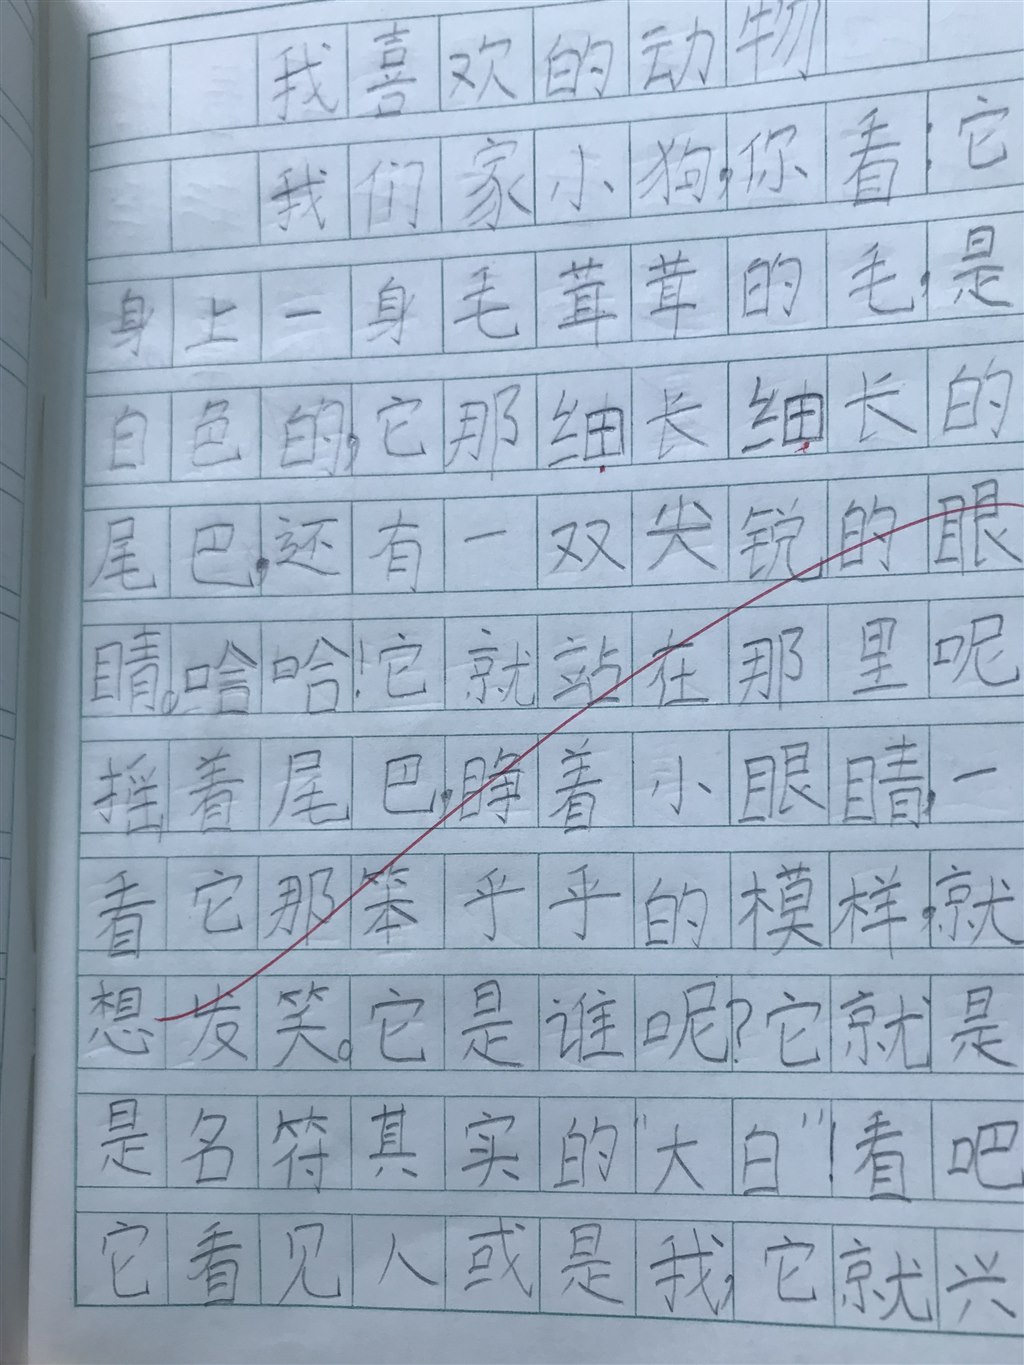 我喜欢的动物
我们家小狗,你看:它
身上一身毛茸茸的毛,是
白色的,它那细长细长的
尾巴,还有一双尖锐的眼
睛。哈哈!它就站在那里呢
摇着尾巴,睁着小眼睛,一
看它那笨乎乎的模样,就
想发笑。它是谁呢?它就是
是名符其实的"大白"!看吧
它看见人或是我,它就兴